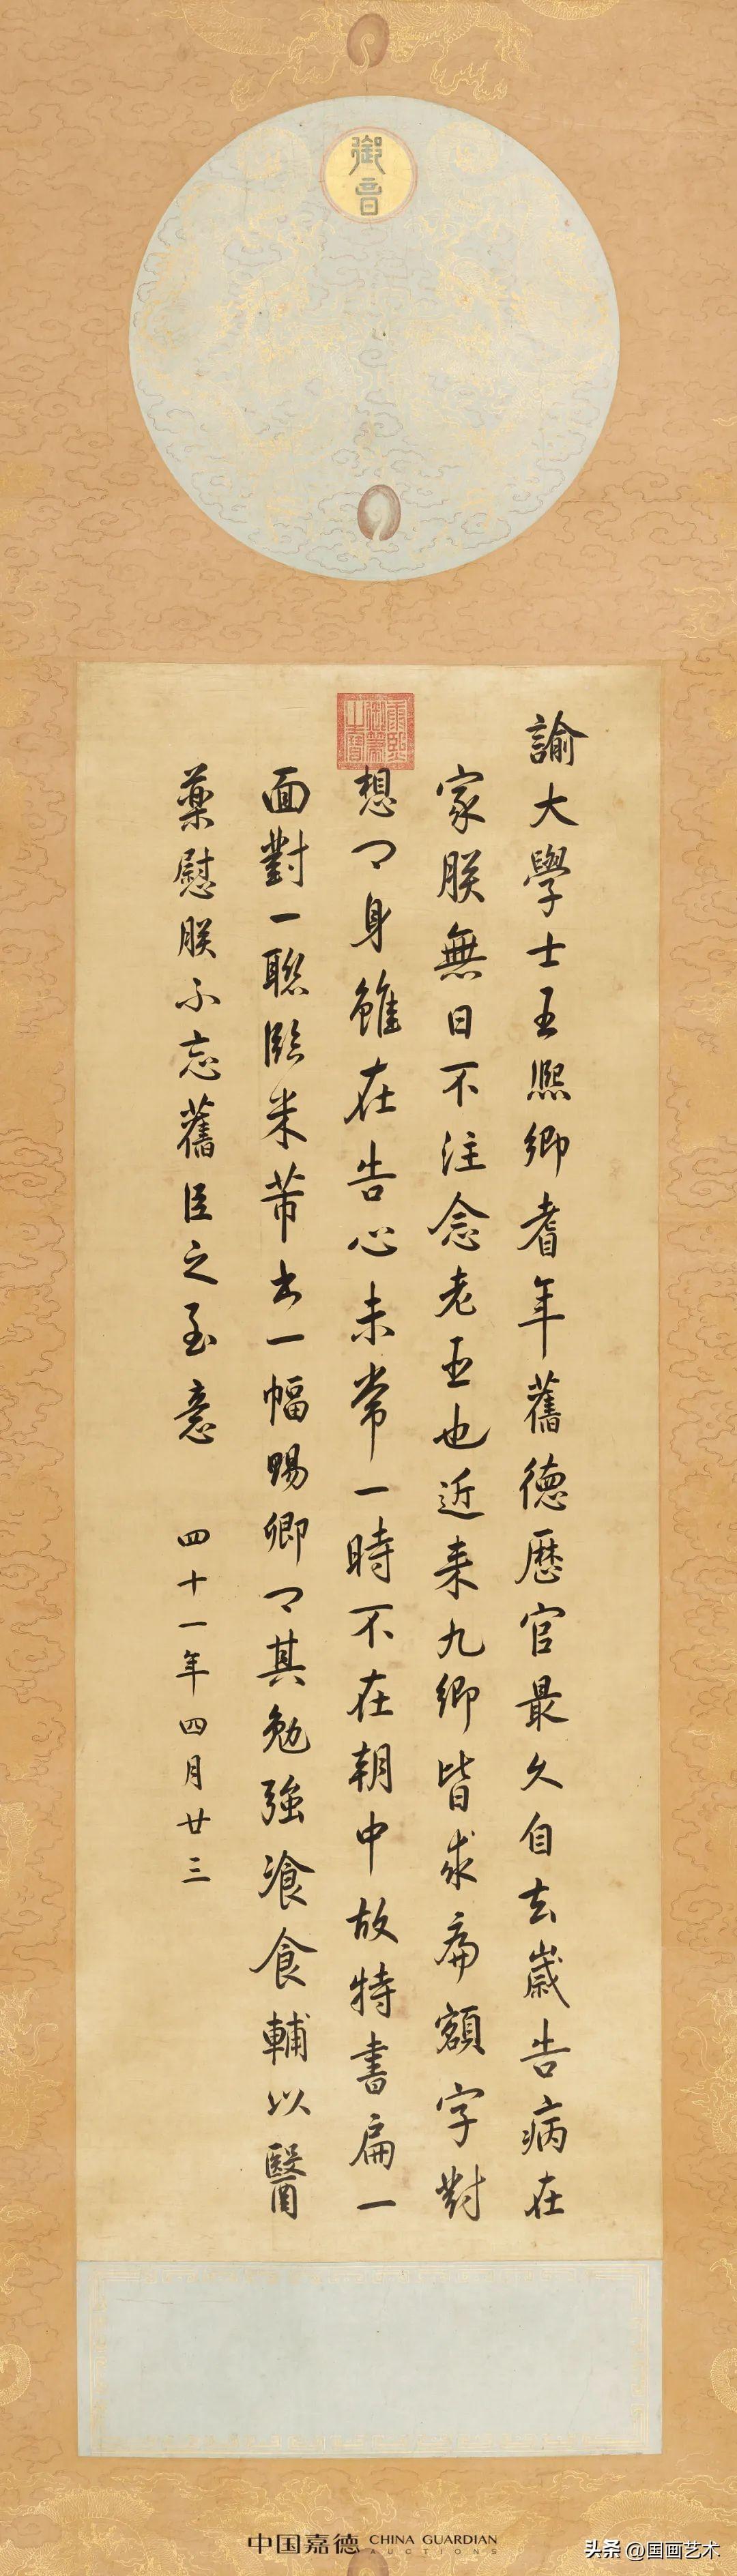 御音
康熙御筆之寶
諭大學士王熈卿耆年舊德歷官最久自去歲告病在
家朕無日不注念老王也近来九卿皆求扁額字對
想卿身雖在告心未常一時不在朝中故特書扁一
面對一聯臨米芾書一幅賜卿卿其勉強飡食輔以醫
藥慰朕不忘舊臣之至意 四十一年四月廿三
中国嘉德 CHINA GUARDIAN
AUCTIONS
头条 @国画艺术